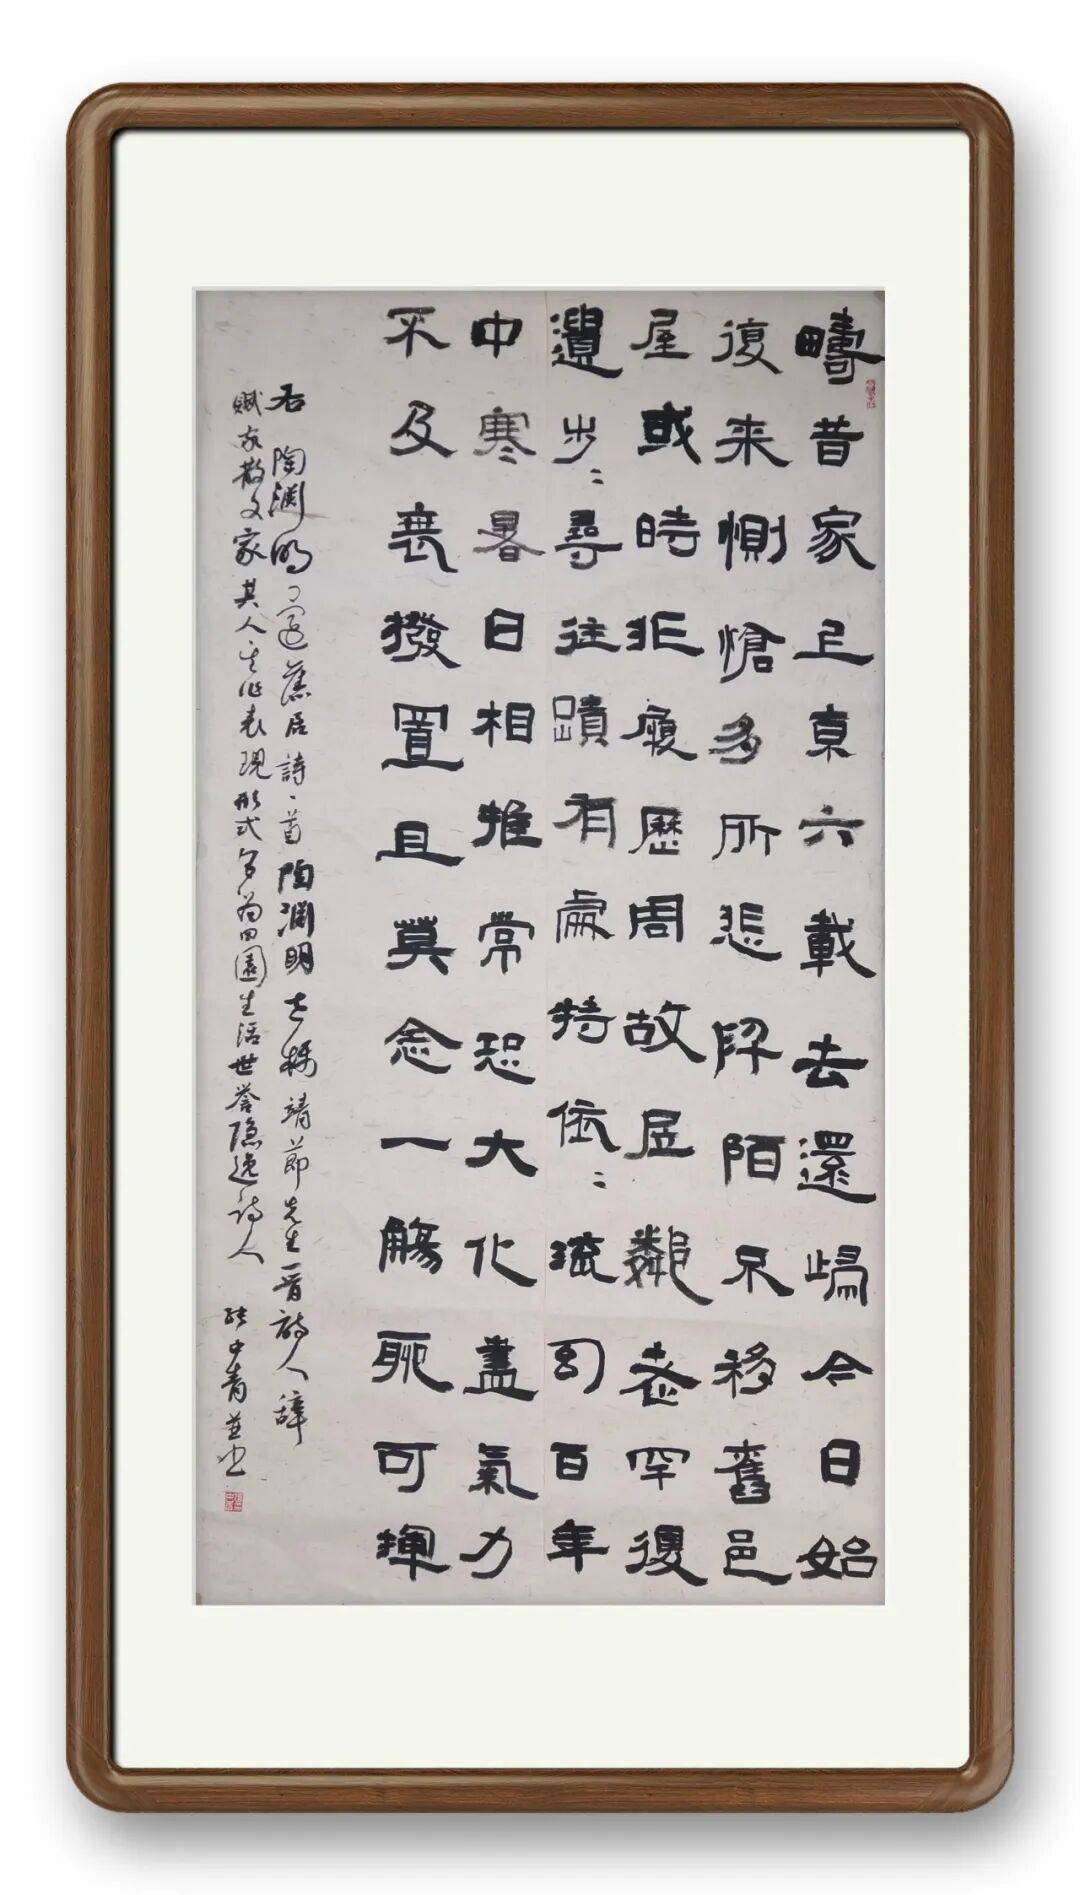 疇昔家上京六載去還歸今日始
復来惻愴多所悲阡陌不移舊邑
屋或時非履歷周故居鄰老罕復
遺步〻尋往蹟有處特依〻流幻百年
中寒暑日相推常恐大化盡氣力
不及衰撥置且莫念一觴聊可揮
右陶渊明還舊居詩一首陶渊明世稱靖節先生晋詩人辞
赋家散文家其人其作表現形式多為田園生活世譽隐逸诗人